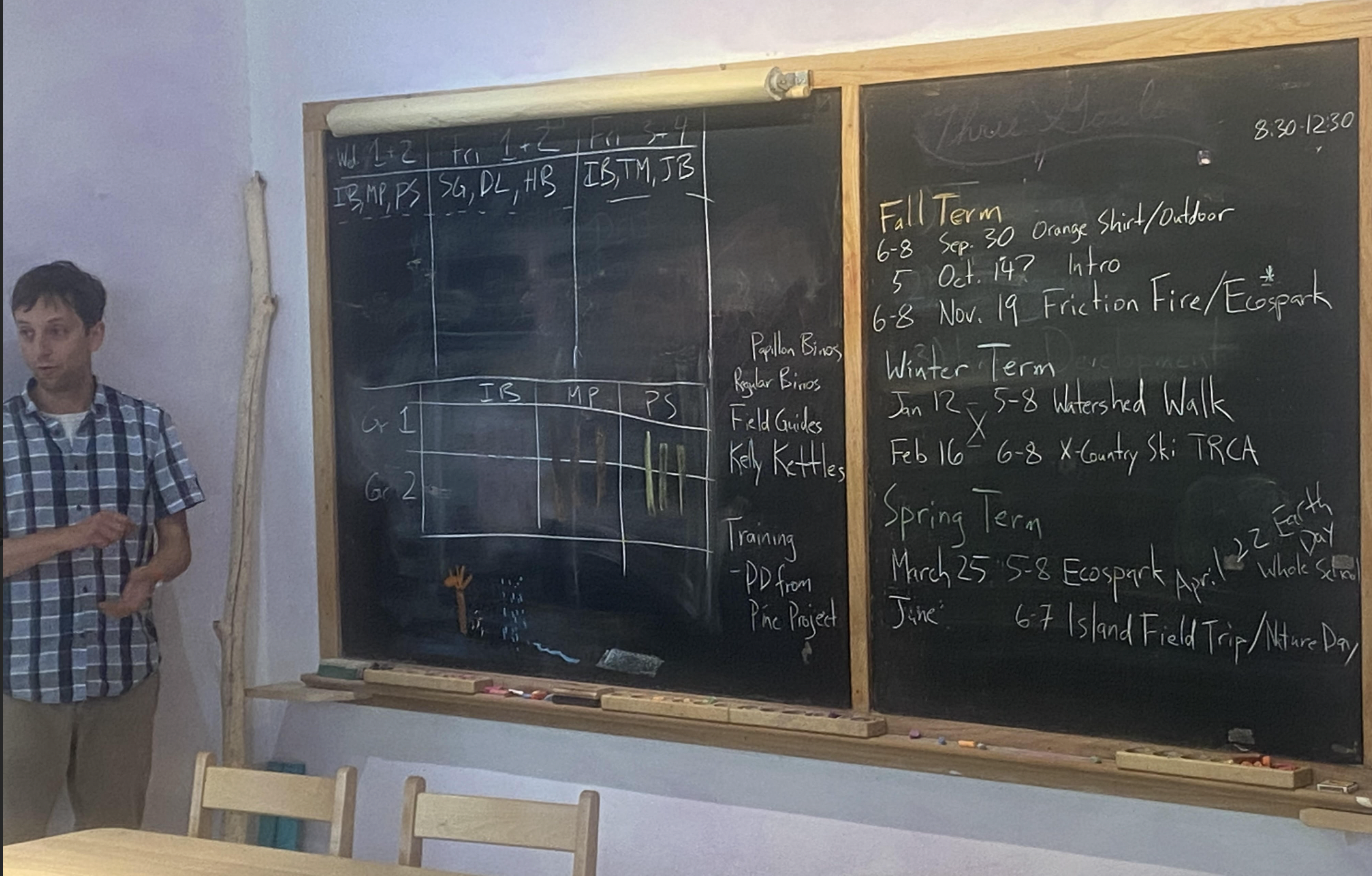 Wd 1+2 Fri 1+2 Fri 3+4
IB, MP, PS SG, DL, HB IB, TM, JB
IB MP PS
Gr 1
Gr 2
Papillon Binos
Regular Binos
Field Guides
Kelly Kettles
Training
- PD from
Pine Project
Three Goals
8:30-12:30
Fall Term
6-8 Sep. 30 Orange Shirt/Outdoor
5 Oct. 14? Intro
6-8 Nov. 19 Friction Fire/Ecospark
Winter Term
Jan 12 - 5-8 Watershed Walk
X
Feb 16 - 6-8 X-Country Ski TRCA
Spring Term
March 25 5-8 Ecospark
April 22 Earth
Day
Whole School
June: 6-7 Island Field Trip/Nature Day